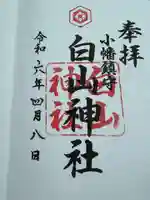 奉拝
小幡鎮守
白山神社
白山神社
令和六年四月八日